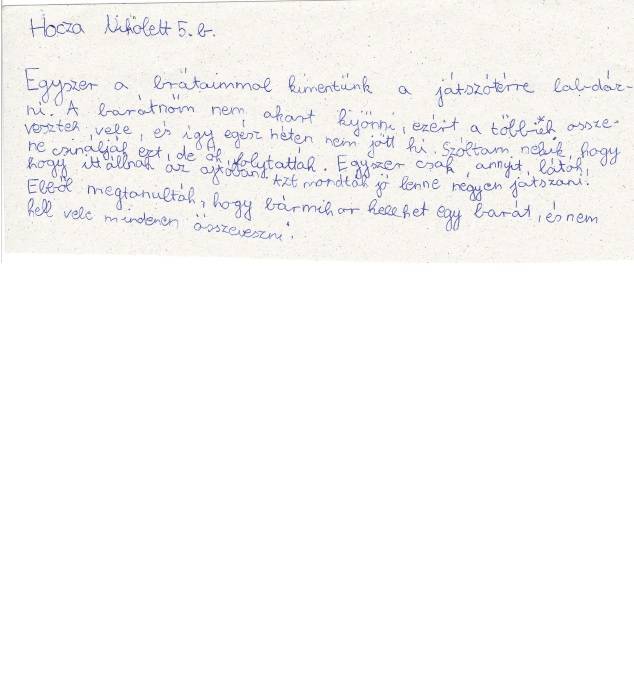 Hocza Nikolett 5. b.
Egyszer a brátaimmal kimentünk a játszótérre labdáz-
ni. A barátnőm nem akart kijönni, ezért a többiek össze-
vesztek vele, és így egész héten nem jött ki. Szóltam nekik, hogy
ne csinálják ezt, de ők folytatták. Egyszer csak annyit látok,
hogy itt állnak az ajtóban. Azt mondták jó lenne négyen játszani.
Ebből megtanulták, hogy bármikor kellhet egy barát, és nem
kell vele mindenen összeveszni.